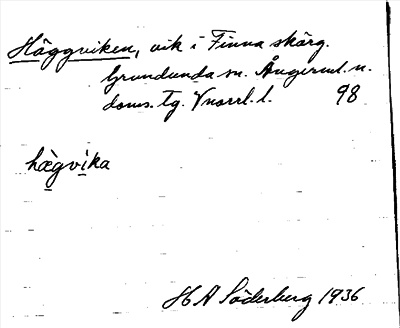 Häggviken, vik i Finna skärg.
Grundsunda sn. Ångerml. n.
doms. tg. Vnorrl. l. 98
hægvika
H A Söderberg 1936